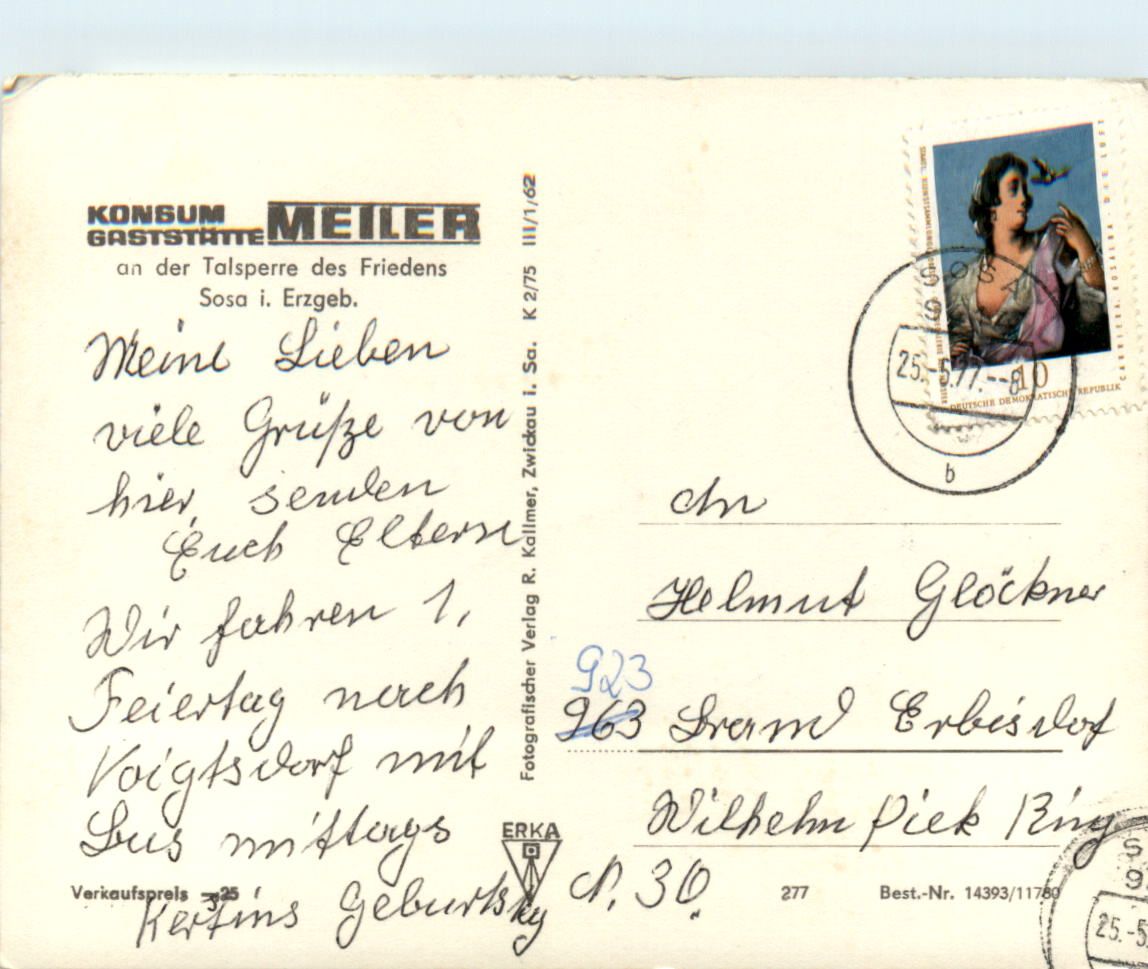 KONSUM
GASTSTÄTTE MEILER
an der Talsperre des Friedens
Sosa i. Erzgeb.
Meine Lieben
viele Grüße von
hier, senden
Euch Eltern
Wir fahren 1.
Feiertag nach
Voigtsdorf mit
Bus mittags
Verkaufspreis -,25
Kerstins Geburtstg
Fotografischer Verlag R. Kallmer, Zwickau i. Sa. K 2/75 III/1/62
ERKA
DEUTSCHE DEMOKRATISCHE REPUBLIK
10
CARRIERA, ROSALBA · DIE LUFT
SOSA
25.-5.77.--8
b
An
Helmut Glöckner
923
963 Brand Erbisdorf
Wilhelm Piek Ring
N. 30
277
Best.-Nr. 14393/11780
25.-5